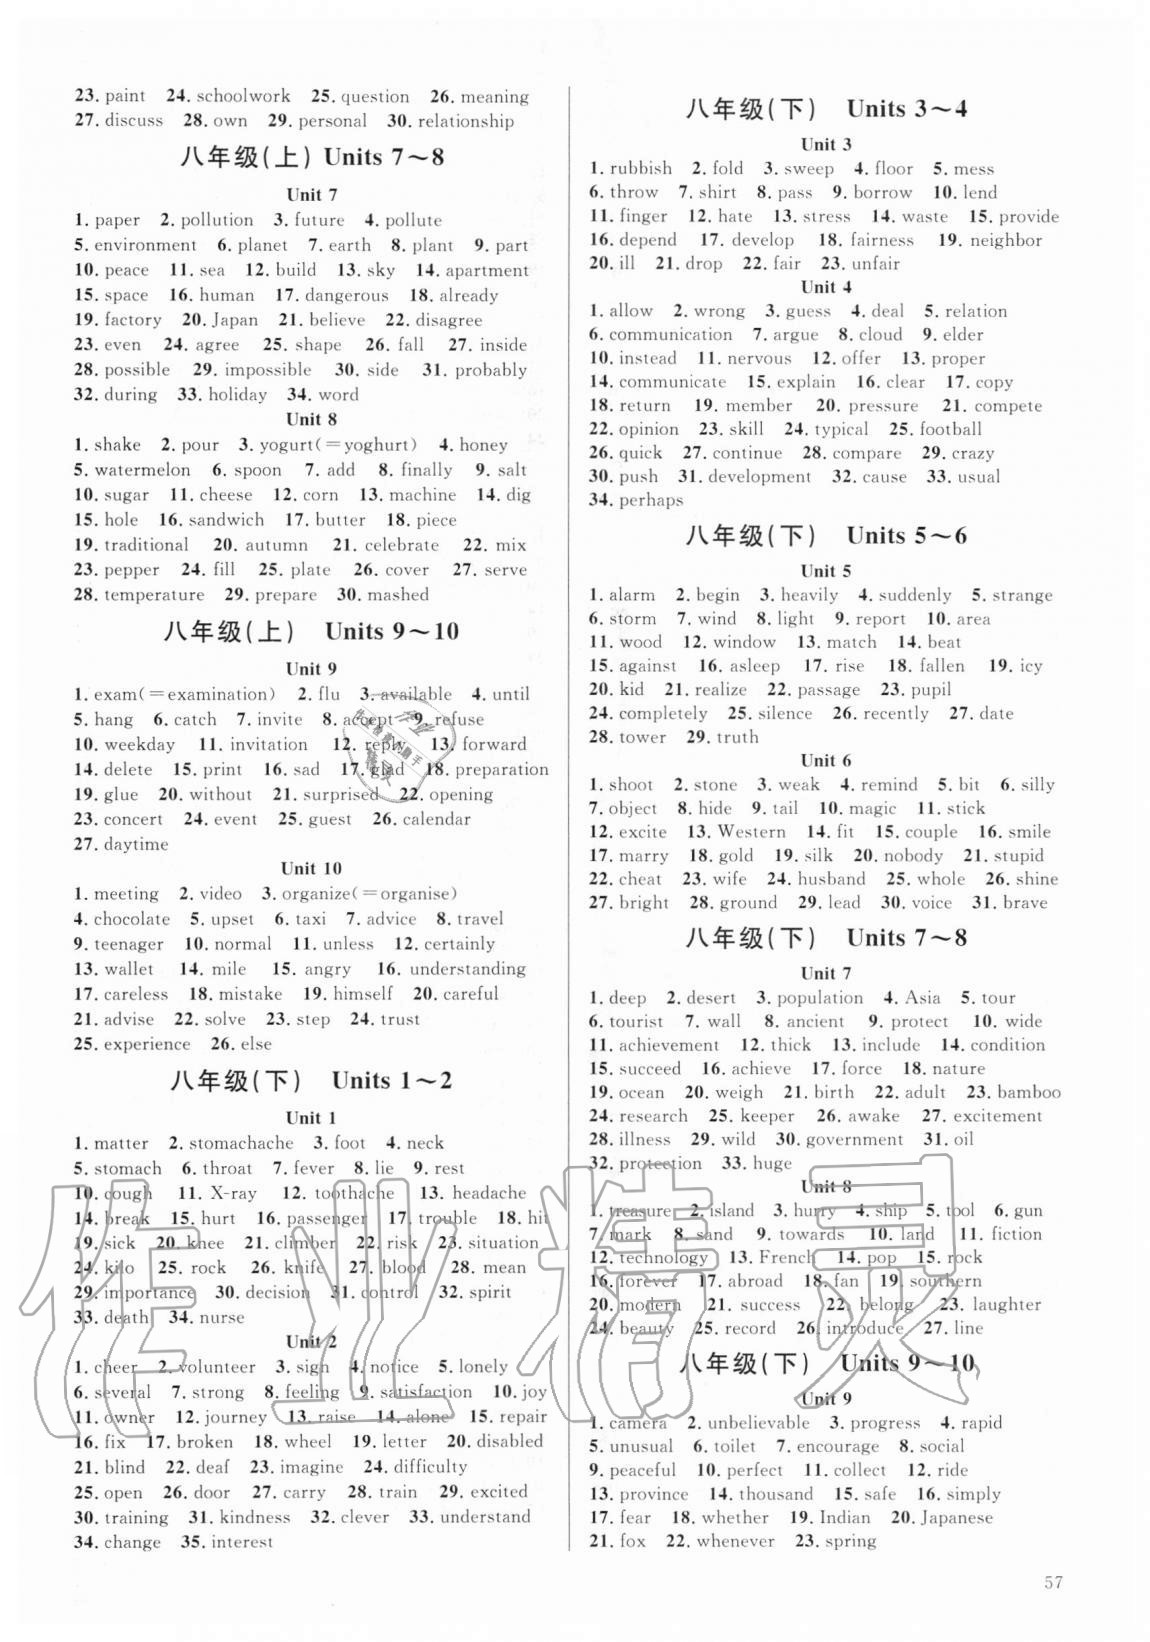 23. paint 24. schoolwork 25. question 26. meaning
27. discuss 28. own 29. personal 30. relationship
八年级(上) Units 7～8
Unit 7
1. paper 2. pollution 3. future 4. pollute
5. environment 6. planet 7. earth 8. plant 9. part
10. peace 11. sea 12. build 13. sky 14. apartment
15. space 16. human 17. dangerous 18. already
19. factory 20. Japan 21. believe 22. disagree
23. even 24. agree 25. shape 26. fall 27. inside
28. possible 29. impossible 30. side 31. probably
32. during 33. holiday 34. word
Unit 8
1. shake 2. pour 3. yogurt(=yoghurt) 4. honey
5. watermelon 6. spoon 7. add 8. finally 9. salt
10. sugar 11. cheese 12. corn 13. machine 14. dig
15. hole 16. sandwich 17. butter 18. piece
19. traditional 20. autumn 21. celebrate 22. mix
23. pepper 24. fill 25. plate 26. cover 27. serve
28. temperature 29. prepare 30. mashed
八年级(上) Units 9～10
Unit 9
1. exam(=examination) 2. flu 3. available 4. until
5. hang 6. catch 7. invite 8. accept 9. refuse
10. weekday 11. invitation 12. reply 13. forward
14. delete 15. print 16. sad 17. glad 18. preparation
19. glue 20. without 21. surprised 22. opening
23. concert 24. event 25. guest 26. calendar
27. daytime
Unit 10
1. meeting 2. video 3. organize(=organise)
4. chocolate 5. upset 6. taxi 7. advice 8. travel
9. teenager 10. normal 11. unless 12. certainly
13. wallet 14. mile 15. angry 16. understanding
17. careless 18. mistake 19. himself 20. careful
21. advise 22. solve 23. step 24. trust
25. experience 26. else
八年级(下) Units 1～2
Unit 1
1. matter 2. stomachache 3. foot 4. neck
5. stomach 6. throat 7. fever 8. lie 9. rest
10. cough 11. X-ray 12. toothache 13. headache
14. break 15. hurt 16. passenger 17. trouble 18. hit
19. sick 20. knee 21. climber 22. risk 23. situation
24. kilo 25. rock 26. knife 27. blood 28. mean
29. importance 30. decision 31. control 32. spirit
33. death 34. nurse
Unit 2
1. cheer 2. volunteer 3. sign 4. notice 5. lonely
6. several 7. strong 8. feeling 9. satisfaction 10. joy
11. owner 12. journey 13. raise 14. alone 15. repair
16. fix 17. broken 18. wheel 19. letter 20. disabled
21. blind 22. deaf 23. imagine 24. difficulty
25. open 26. door 27. carry 28. train 29. excited
30. training 31. kindness 32. clever 33. understand
34. change 35. interest
八年级(下) Units 3～4
Unit 3
1. rubbish 2. fold 3. sweep 4. floor 5. mess
6. throw 7. shirt 8. pass 9. borrow 10. lend
11. finger 12. hate 13. stress 14. waste 15. provide
16. depend 17. develop 18. fairness 19. neighbor
20. ill 21. drop 22. fair 23. unfair
Unit 4
1. allow 2. wrong 3. guess 4. deal 5. relation
6. communication 7. argue 8. cloud 9. elder
10. instead 11. nervous 12. offer 13. proper
14. communicate 15. explain 16. clear 17. copy
18. return 19. member 20. pressure 21. compete
22. opinion 23. skill 24. typical 25. football
26. quick 27. continue 28. compare 29. crazy
30. push 31. development 32. cause 33. usual
34. perhaps
八年级(下) Units 5～6
Unit 5
1. alarm 2. begin 3. heavily 4. suddenly 5. strange
6. storm 7. wind 8. light 9. report 10. area
11. wood 12. window 13. match 14. beat
15. against 16. asleep 17. rise 18. fallen 19. icy
20. kid 21. realize 22. passage 23. pupil
24. completely 25. silence 26. recently 27. date
28. tower 29. truth
Unit 6
1. shoot 2. stone 3. weak 4. remind 5. bit 6. silly
7. object 8. hide 9. tail 10. magic 11. stick
12. excite 13. Western 14. fit 15. couple 16. smile
17. marry 18. gold 19. silk 20. nobody 21. stupid
22. cheat 23. wife 24. husband 25. whole 26. shine
27. bright 28. ground 29. lead 30. voice 31. brave
八年级(下) Units 7～8
Unit 7
1. deep 2. desert 3. population 4. Asia 5. tour
6. tourist 7. wall 8. ancient 9. protect 10. wide
11. achievement 12. thick 13. include 14. condition
15. succeed 16. achieve 17. force 18. nature
19. ocean 20. weigh 21. birth 22. adult 23. bamboo
24. research 25. keeper 26. awake 27. excitement
28. illness 29. wild 30. government 31. oil
32. protection 33. huge
Unit 8
1. treasure 2. island 3. hurry 4. ship 5. tool 6. gun
7. mark 8. sand 9. towards 10. land 11. fiction
12. technology 13. French 14. pop 15. rock
16. forever 17. abroad 18. fan 19. southern
20. modern 21. success 22. belong 23. laughter
24. beauty 25. record 26. introduce 27. line
八年级(下) Units 9～10
Unit 9
1. camera 2. unbelievable 3. progress 4. rapid
5. unusual 6. toilet 7. encourage 8. social
9. peaceful 10. perfect 11. collect 12. ride
13. province 14. thousand 15. safe 16. simply
17. fear 18. whether 19. Indian 20. Japanese
21. fox 22. whenever 23. spring
57
作业精灵